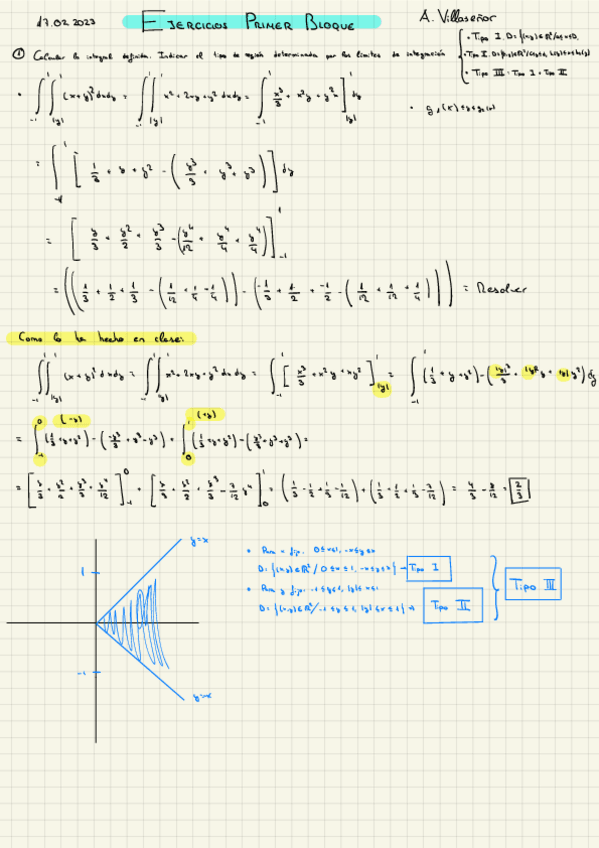 17.02.2023 EJERCICIOS PRIMER BLOQUE A. Villaseñor
① Calcular la integral definida. Indicar el tipo de región determinada por los límites de integración
• Tipo III = Tipo I + Tipo II
• ∫₋₁¹ ∫_|y|¹ (x+y)² dxdy = ∫₋₁¹ ∫_|y|¹ x² + 2xy + y² dxdy = ∫₋₁¹ x³/3 + x²y + y²x ]_|y|¹ dy
= ∫₋₁¹ [ 1/3 + y + y² - ( y³/3 + y³ + y³ ) ] dy
= [ y/3 + y²/2 + y³/3 - ( y⁴/12 + y⁴/4 + y⁴/4 ) ]₋₁¹
= Resolver
Como lo ha hecho en clase:
∫₋₁¹ ∫_|y|¹ (x+y)² dxdy = ∫₋₁¹ ∫_|y|¹ x² + 2xy + y² dxdy = ∫₋₁¹ [ x³/3 + x²y + xy² ]_|y|¹ = ∫₋₁¹ (1/3 + y + y²) - ( |y|³/3 + |y|²y + |y|y² ) dy
(-y) (+y)
= ∫₋₁⁰ (1/3 + y + y²) - ( -y³/3 + y³ - y³ ) + ∫₀¹ (1/3 + y + y²) - ( y³/3 + y³ + y³ ) =
= [ y/3 + y²/2 + y³/3 + y⁴/12 ]₋₁⁰ + [ y/3 + y²/2 + y³/3 - 7/12 y⁴ ]₀¹ = ( 1/3 - 1/2 + 1/3 - 1/12 ) + ( 1/3 + 1/2 + 1/3 - 7/12 ) = 4/3 - 8/12 = 2/3
y=x
1
-1
y=-x
• Para x fijo. 0≤x≤1, -x≤y≤x
D = {(x,y)∈ℝ² / 0≤x≤1, -x≤y≤x} → Tipo I
• Para y fijo. -1≤y≤1, |y|≤x≤1
D = {(x,y)∈ℝ² / -1≤y≤1, |y|≤x≤1} → Tipo II
Tipo III